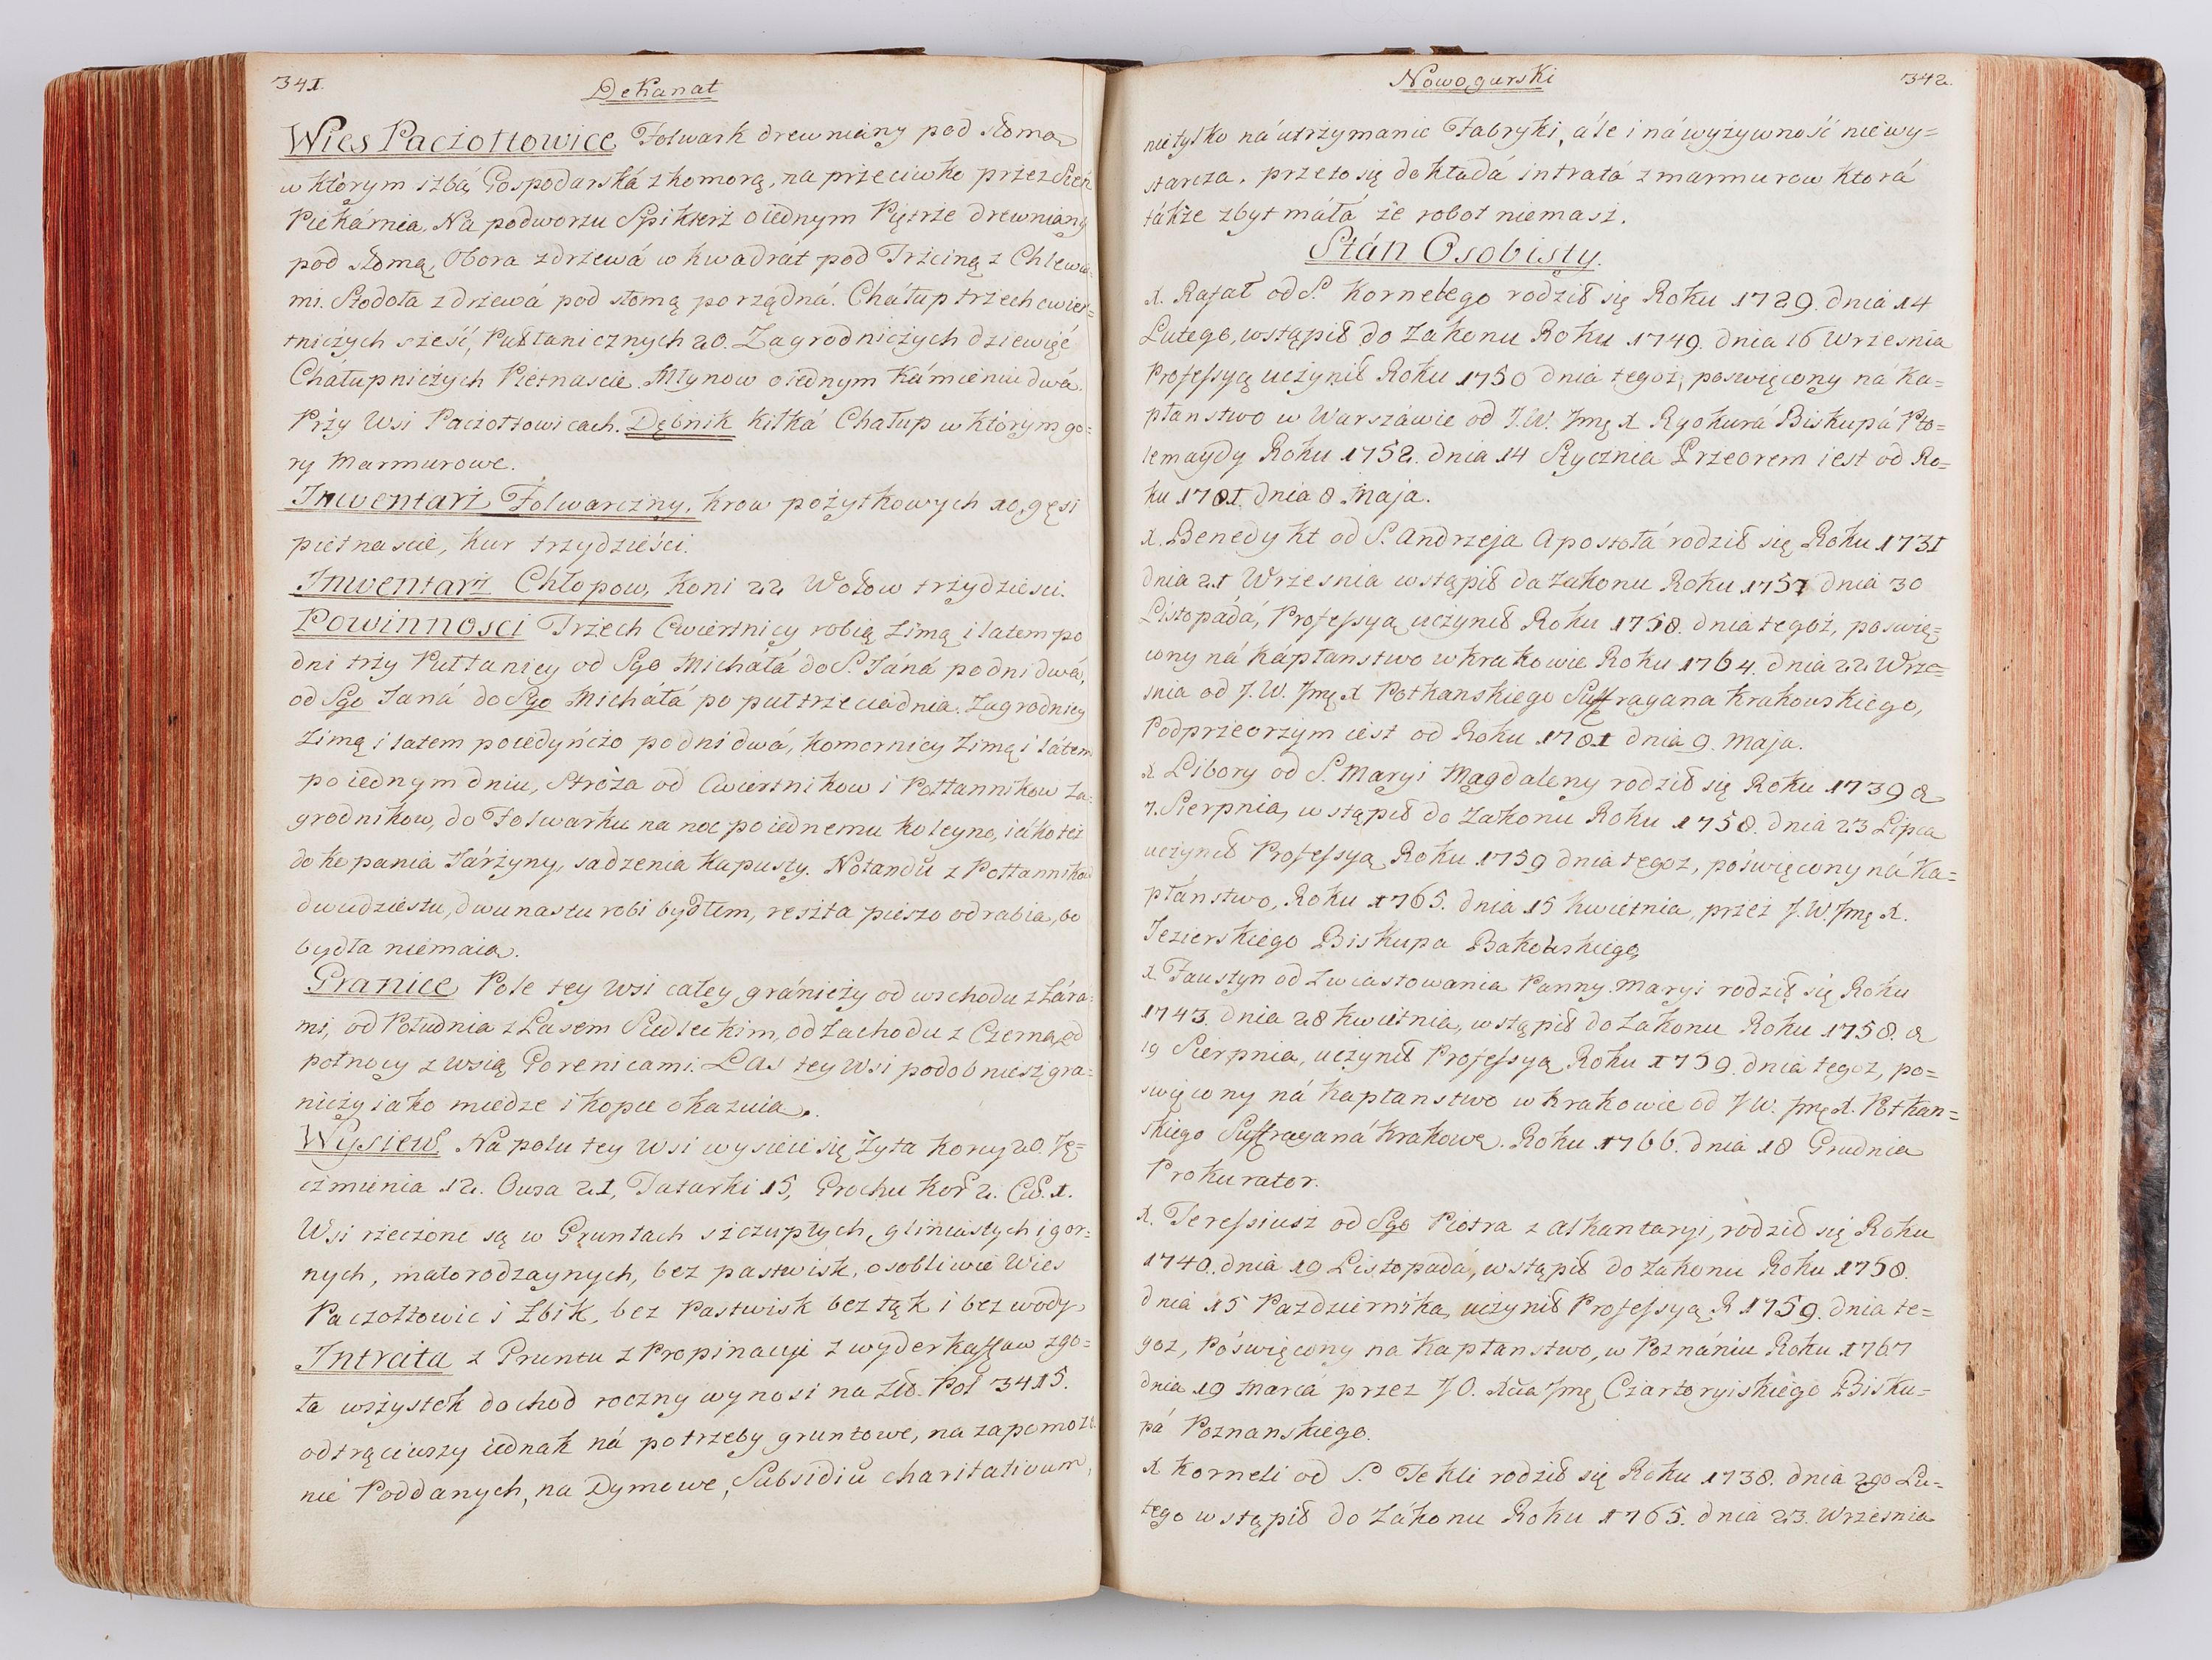 341.
Dekanat
Wies Paczołtowice Folwark drewniany pod słomą
w którym izbá Gospodarská z komorą, na przeciwko przez Sień
Piekárnia, Na podworzu Spiklerż o iednym Piętrze drewniany
pod słomą, Obora z drzewá w kwadrát pod Trzciną z Chlewa=
mi. Stodoła z drzewá pod słomą porządná. Cháłup trzech cwier=
tniczych sześć, Pułłanicznych 20. Zagrodniczych dziewięć
Chałupniczych Pietnascie. Młynow o iednym Kámieniu dwá.
Przy Wsi Paczołtowicach. Dębnik kilká Chałup w którym go=
ry Marmurowe.
Inwentarz Folwarczny, krow pożytkowych 10, gęsi
pietnascie, kur trzydzieści.
Inwentarz Chłopow, Koni 22 Wołow trzydziesci.
Powinnosci Trzech Cwiertnicy robią zimą i latem po
dni trzy Pułłanicy od Sgo Michálá do S. Jáná po dni dwá,
od Sgo Janá do Sgo Michálá po pułtrzecia dnia. Zagrodnicy
zimą i latem poiedyńczo po dni dwá, komornicy zimą i látem
po iednym dniu, Stróża od Cwiertnikow i Połłannikow Za=
grodnikow, do Folwarku na noc po iednemu koleyno, iáko też
do kopania Járżyny, sadzenia kapusty. Notandũ z Połłannikow
dwudziestu, dwunastu robi bydłem, reszta pieszo odrabia, bo
bydła niemaią.
Granice Pole tey Wsi całey gránieży od wschodu z Żára=
mi, od Południa z Lasem Siedleckim, od Zachodu z Czerną, od
połnocy z Wsią Gorenicami. Las tey Wsi podobniesz gra=
niczy iako miedze i kopce okazuią.
Wysiew Na polu tey Wsi wysieie się Żyta Korcy 20. Ję=
czmienia 12. Owsa 21, Tatarki 15, Grochu Kor 2. Cw. 1.
Wsi rzeczone są w Gruntach szczupłych, gliniastych i gor=
nych, mało rodzaynych, bez pastwisk, osobliwie Wies
Paczołtowic i Żbik, bez Pastwisk bez łąk i bez wody
Intrata z Gruntu z Propinacyi z wyderkaffow zgo=
ła wszystek dochod roczny wynosi na Złł. Pol 3415.
odtrąciwszy iednak ná potrzeby gruntowe, na zapomoże
nie Poddanych, na Dymowe, Subsidiũ charitativum,
Nowogurski
342.
nie tylko ná utrzymanie Fabryki, ále i ná wyżywność nie wy=
starcza, przeto się dokładá intratá z marmurow która
tákże zbyt máłá że robot niemasz.
Stán Osobisty.
X. Rafał od S. Kornelego rodził się Roku 1729. dnia 14
Lutego, wstąpił do Zakonu Roku 1749. dnia 16 Wrzesnia
Professyą uczynił Roku 1750 dnia tegoż, poswięcony ná Ka=
płanstwo w Warszáwie od J.W. Jmę X Ryokurá Biskupá Pto=
lemaydy Roku 1752. dnia 14 Stycznia Przeorem iest od Ro=
ku 1781. dnia 8 Maja.
X. Benedykt od S. Andrzeja Apostołá rodził się Roku 1731
dnia 21 Wrzesnia wstąpił do Zakonu Roku 1757 dnia 30
Listopádá, Professyą uczynił Roku 1758. dnia tegoż, poswię=
cony ná Kápłanstwo w Krakowie Roku 1764. dnia 22 Wrze=
snia od J.W. Jmę X Potkanskiego Suffragana Krakowskiego,
Podprzeorzym iest od Roku 1781 dnia 9. Maja.
X Libory od S. Maryi Magdaleny rodził się Roku 1739 d
7. Sierpnia, wstąpił do Zakonu Roku 1758. dnia 23 Lipca
uczynił Professyą Roku 1759 dnia tegoż, poświęcony ná Ka=
płáństwo, Roku 1765. dnia 15 kwietnia, przez J.W. Jmę X.
Jezierskiego Biskupa Bakowskiego,
X. Faustyn od Zwiastowania Panny Maryi rodził się Roku
1743. dnia 28 kwietnia, wstąpił do Zakonu Roku 1758. d
19 Sierpnia, uczynił Professyą Roku 1759. dnia tegoż, po=
swięcony ná Kapłanstwo w Krakowie od J W. Jmę X. Potkan=
skiego Suffraganá Krakowę. Roku 1766. dnia 18 Grudnia
Prokurator.
X. Teressiusz od Sgo Piotra z Alkantaryi, rodził się Roku
1740. dnia 19 Listopadá, wstąpił do Zakonu Roku 1758.
dnia 15 Pazdziernika, uczynił Professyą R 1759. dnia te=
goż, Poświęcony na Kapłanstwo, w Poznániu Roku 1767
dnia 19 Marcá przez J O. Xcia Jmę Czartoryiskiego Bisku=
pá Poznanskiego.
X Korneli od S. Tekli rodził się Roku 1738. dnia 2go Lu=
tego wstąpił do Zákonu Roku 1765. dnia 23. Wrzesnia